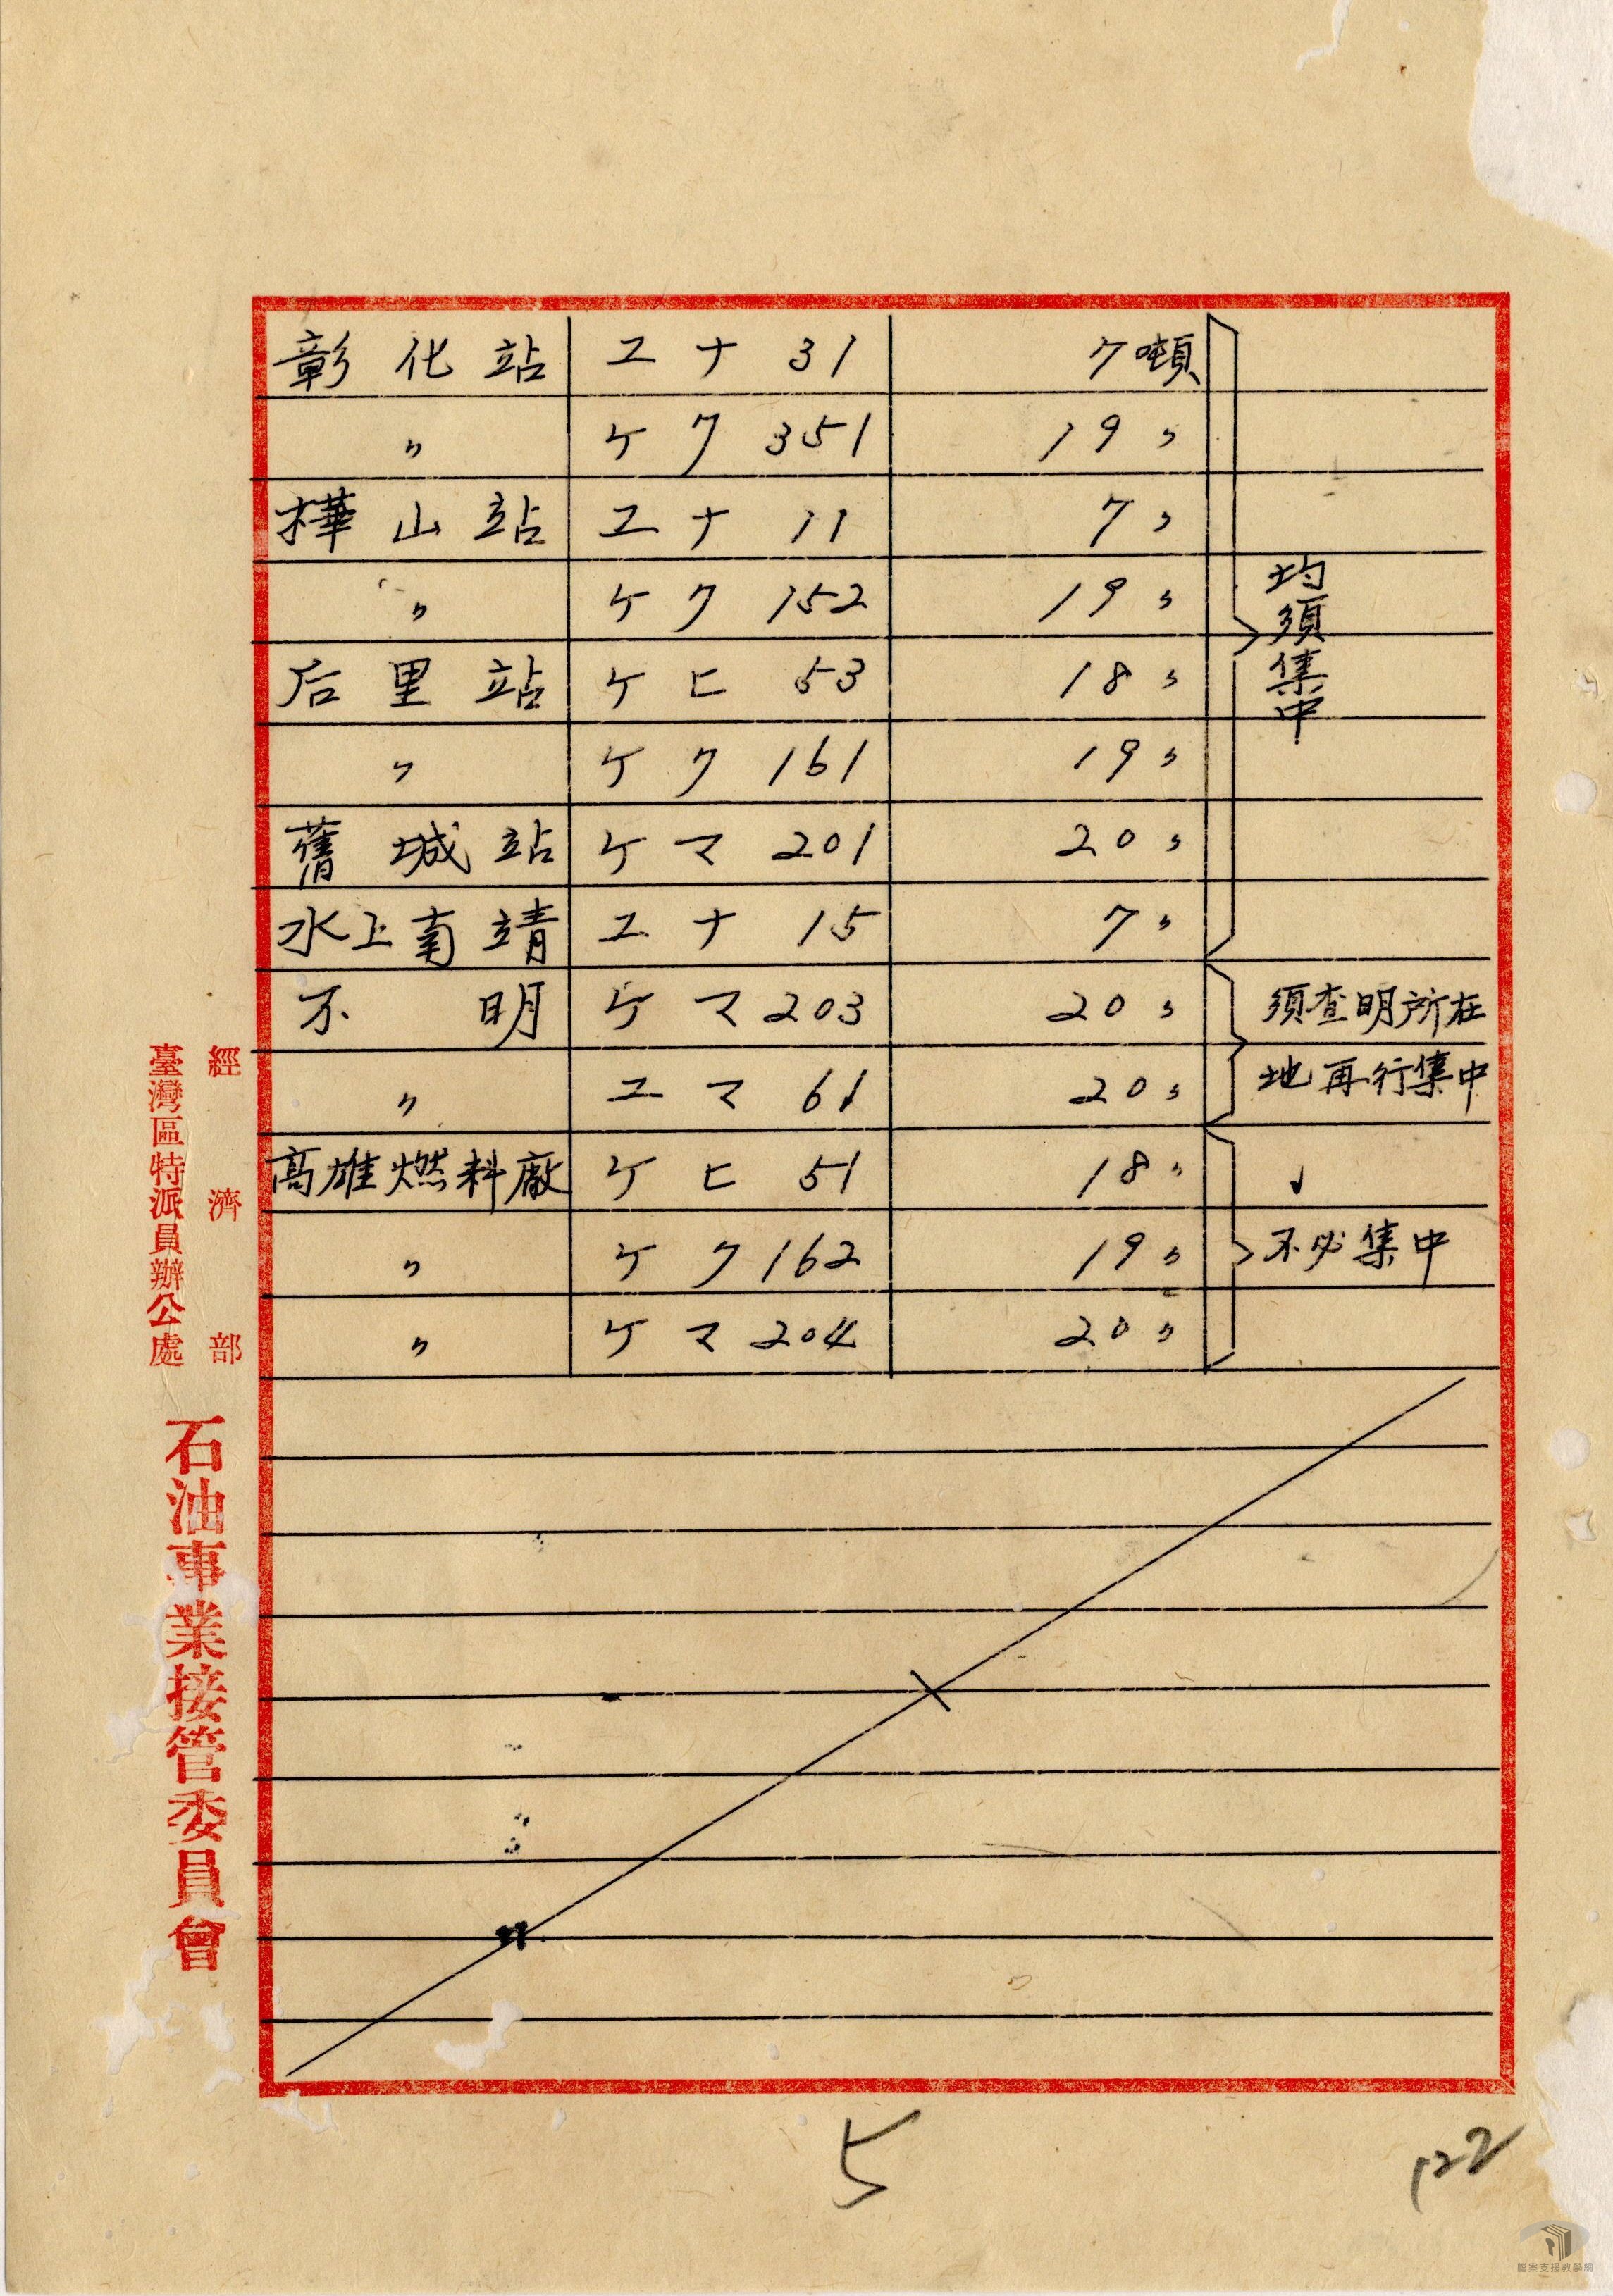 彰化站 エナ 31 7噸
〃 ケク 351 19〃
樺山站 エナ 11 7〃
〃 ケク 152 19〃
后里站 ケヒ 53 18〃
〃 ケク 161 19〃
舊城站 ケマ 201 20〃
水上南靖 エナ 15 7〃
均須集中
不明 ケマ 203 20〃 須查明所在
〃 エマ 61 20〃 地再行集中
高雄燃料廠 ケヒ 51 18〃
〃 ケク 162 19〃 不必集中
〃 ケマ 204 20〃
經濟部
臺灣區特派員辦公處
石油事業接管委員會
5
122
檔案支援教學網